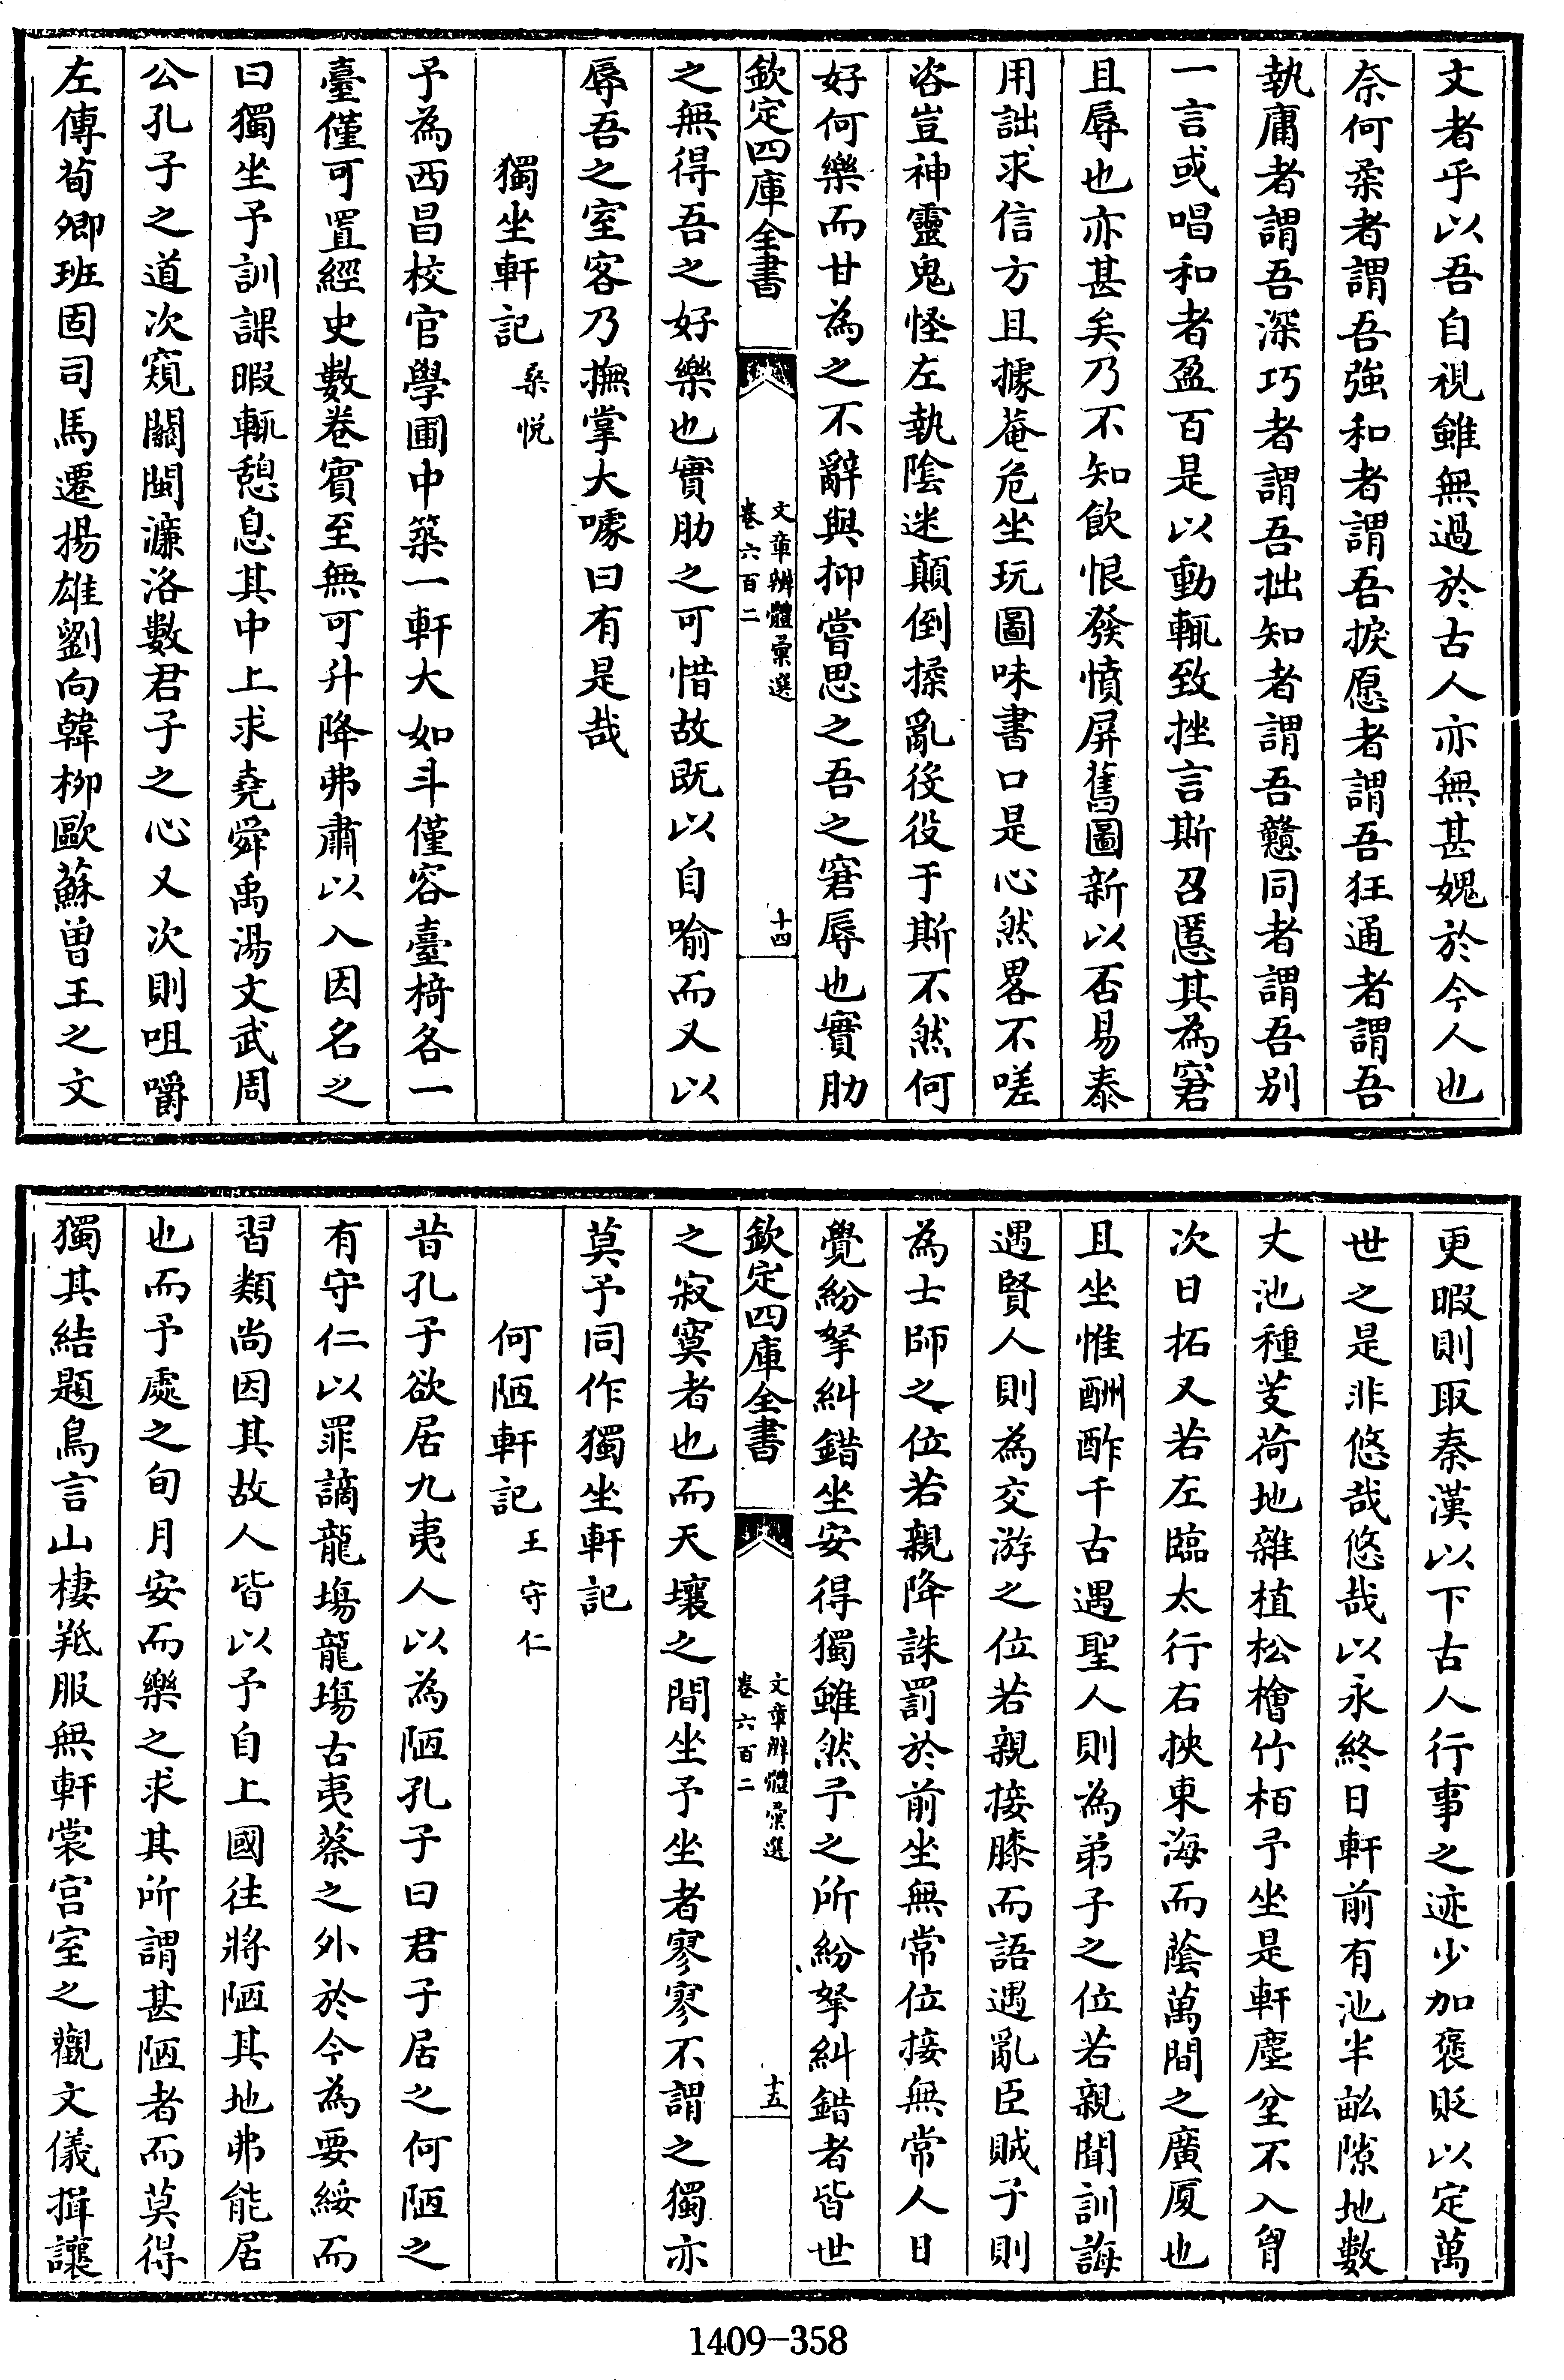 文者乎以吾自視雖無過於古人亦無甚媿於今人也
奈何柔者謂吾強和者謂吾捩愿者謂吾狂通者謂吾
執庸者謂吾深巧者謂吾拙知者謂吾戇同者謂吾别
一言或唱和者盈百是以動輒致挫言斯召慝其為窘
且辱也亦甚矣乃不知飲恨發憤屏舊圖新以否易泰
用詘求信方且據菴危坐玩圖味書口是心然畧不嗟
咨豈神靈鬼怪左執陰迷顛倒揉亂役役于斯不然何
好何樂而甘為之不辭與抑嘗思之吾之窘辱也實肋
欽定四庫全書
文章辨體彙選
卷六百二
十四
之無得吾之好樂也實肋之可惜故既以自喻而又以
辱吾之室客乃撫掌大噱曰有是哉
獨坐軒記 桑悦
予為西昌校官學圃中築一軒大如斗僅容臺椅各一
臺僅可置經史數卷賓至無可升降弗肅以入因名之
曰獨坐予訓課暇輒憩息其中上求堯舜禹湯文武周
公孔子之道次窺關閩濂洛數君子之心又次則咀嚼
左傳荀卿班固司馬遷揚雄劉向韓柳歐蘇曾王之文
更暇則取秦漢以下古人行事之迹少加褒貶以定萬
世之是非悠哉悠哉以永終日軒前有池半畝隙地數
丈池種芰荷地雜植松檜竹栢予坐是軒塵坌不入胷
次日拓又若左臨太行右挾東海而蔭萬間之廣厦也
且坐惟酬酢千古遇聖人則為弟子之位若親聞訓誨
遇賢人則為交游之位若親接膝而語遇亂臣賊子則
為士師之位若親降誅罰於前坐無常位接無常人日
覺紛拏糾錯坐安得獨雖然予之所紛拏糾錯者皆世
欽定四庫全書
文章辨體彙選
卷六百二
十五
之寂寞者也而天壤之間坐予坐者寥寥不謂之獨亦
莫予同作獨坐軒記
何陋軒記 王守仁
昔孔子欲居九夷人以為陋孔子曰君子居之何陋之
有守仁以罪謫龍塲龍塲古夷蔡之外於今為要綏而
習類尚因其故人皆以予自上國往將陋其地弗能居
也而予處之旬月安而樂之求其所謂甚陋者而莫得
獨其結題鳥言山棲羝服無軒裳宫室之觀文儀揖讓
1409-358